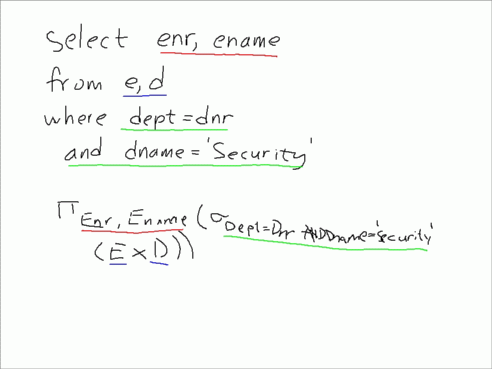 select enr, ename
from e, d
where dept = dnr
and dname = 'Security'
π Enr, Ename (σ Dept = Dnr AND Dname = 'security'
(E × D))